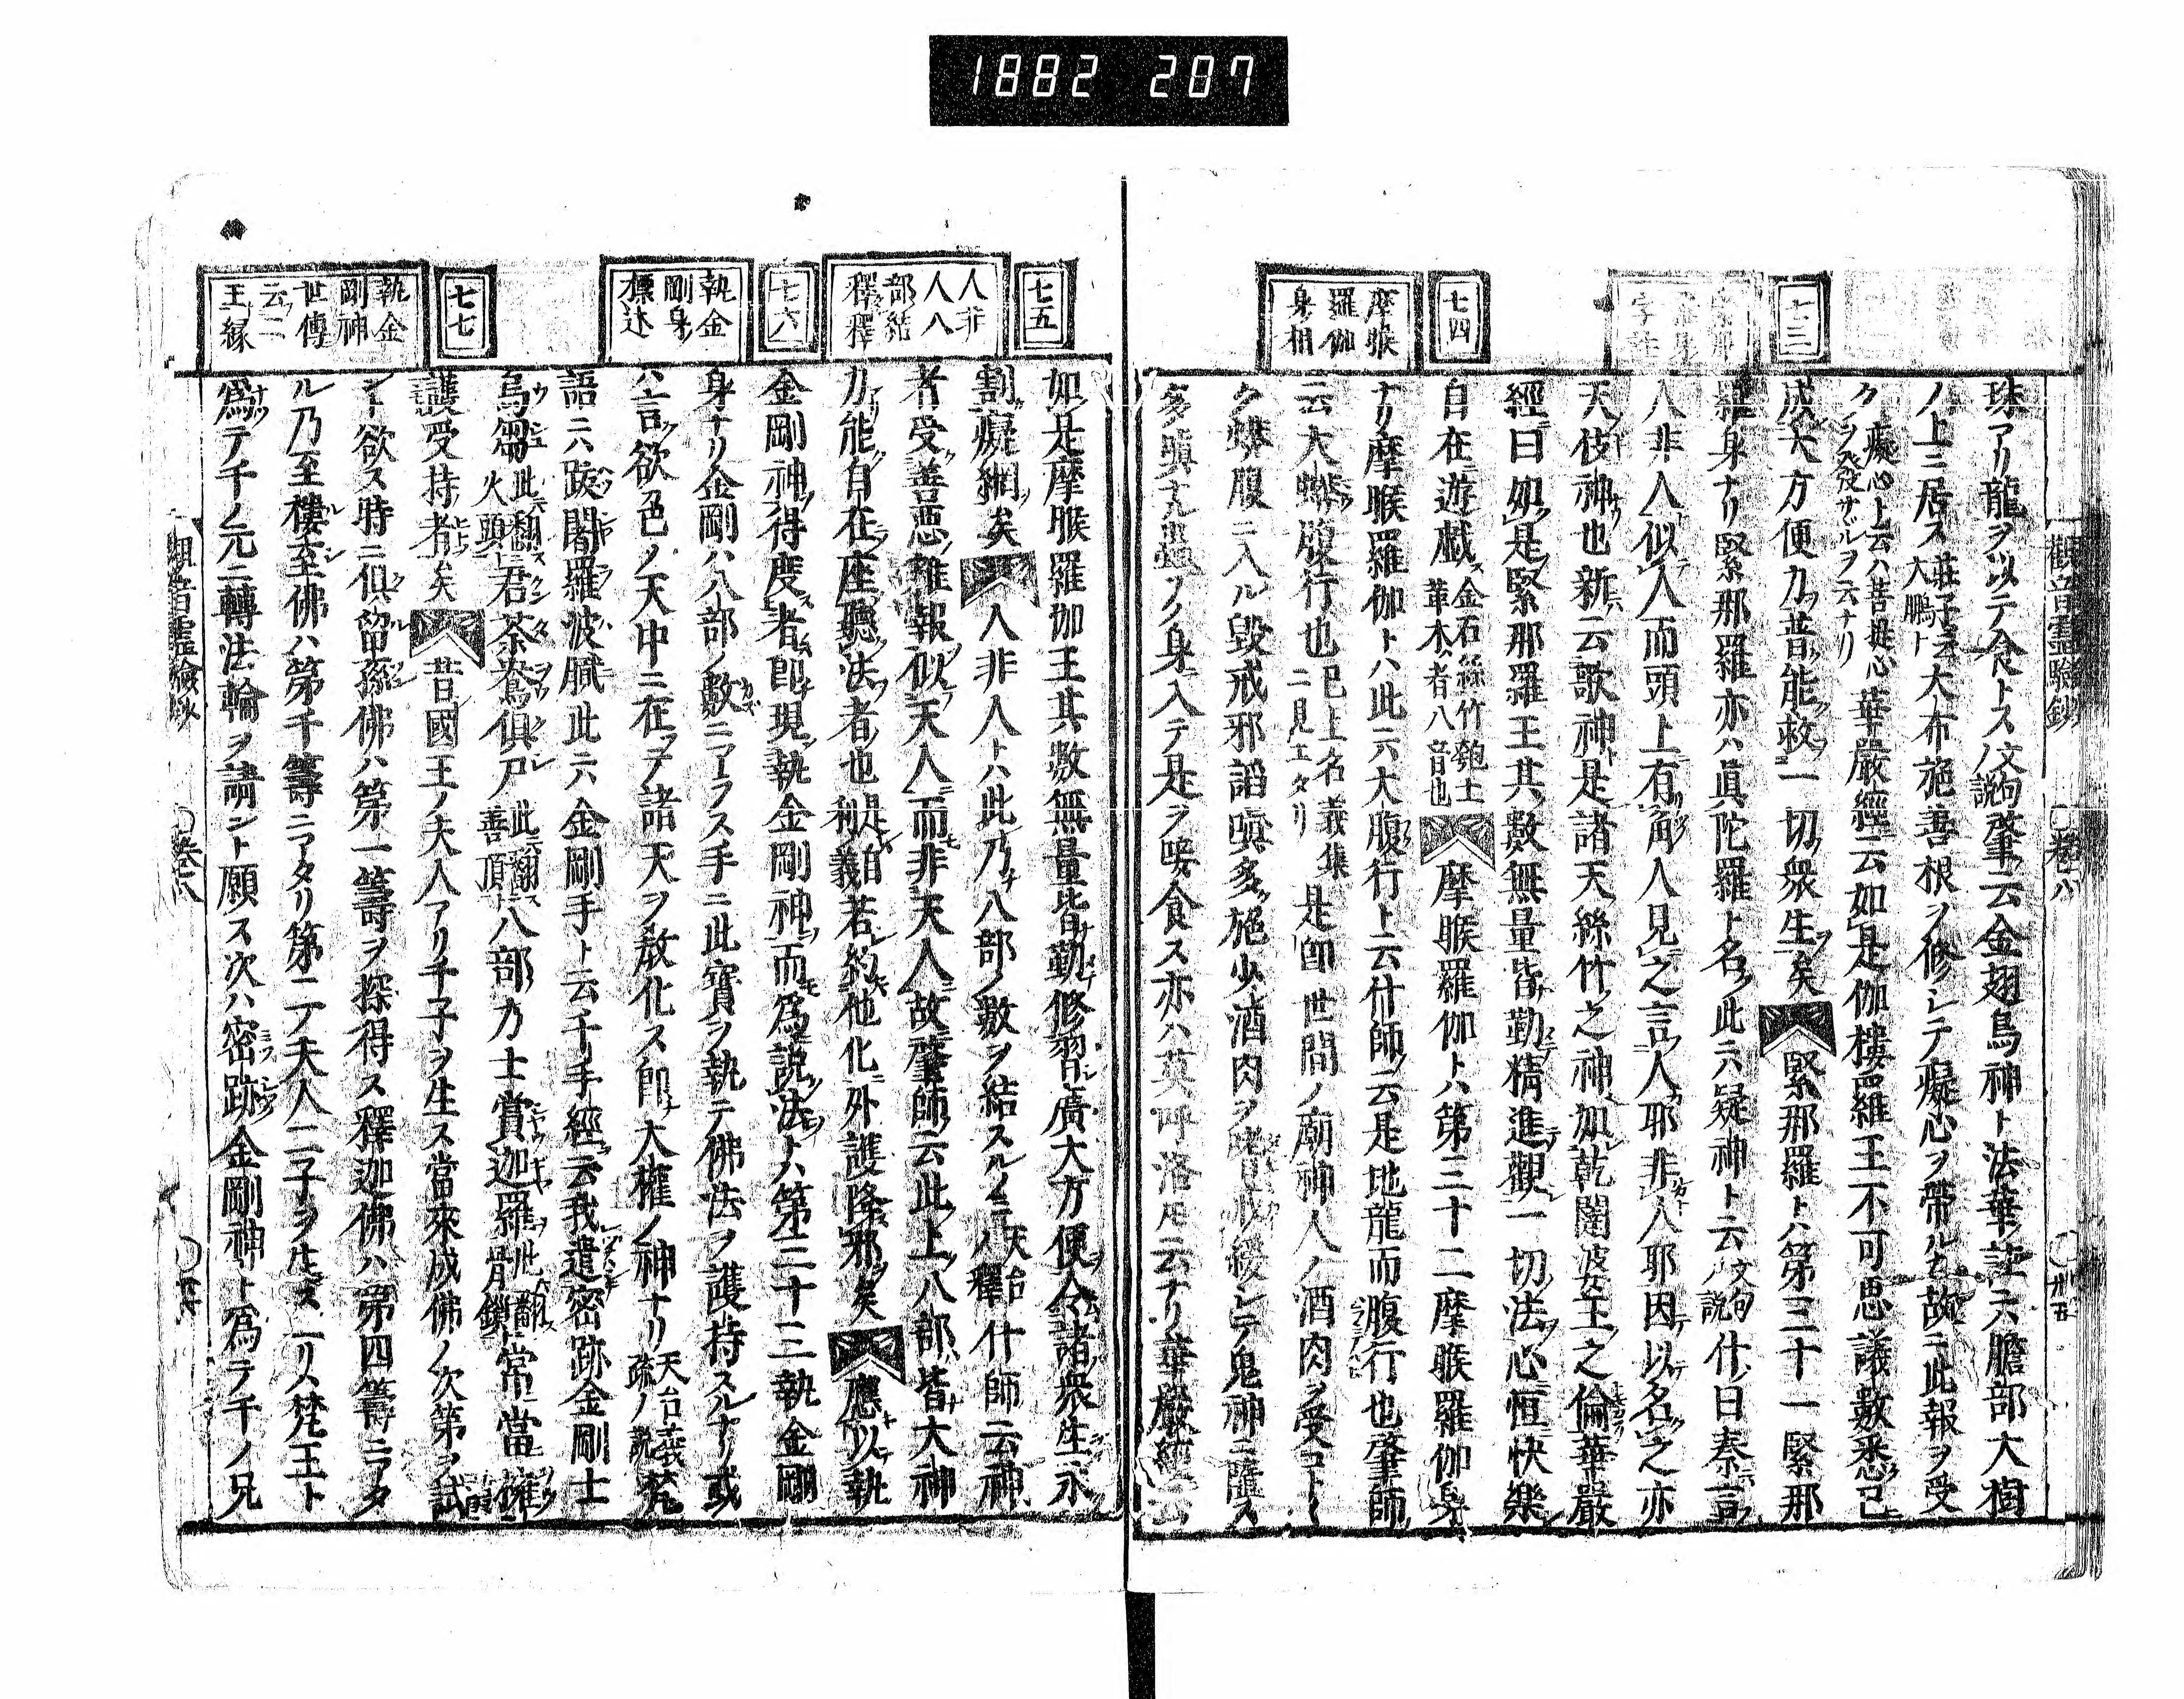 1882 207
觀音靈驗鈔 卷六 丗五
七三
七四
摩睺
羅伽
身相
珠アリ龍ヲ以テ食トス文句ノ説肇云金翅鳥神ト法華註云膽部大樹
ノ上ニ居ス莊子云大鵬ト大布施善根ヲ修シテ癡心ヲ帶ル故ニ此報ヲ受
ク癡心ト云ハ菩提心ヲ發サヾルヲ云ナリ華嚴經云如是伽樓羅王不可思議數悉已
成大方便力普能救一切衆生矣緊那羅ト八第三十一緊那
羅身ナリ緊那羅亦ハ眞陀羅ト名ク此云疑神ト云文句ノ説什曰秦言
人非人似人而頭上有角人見之言人耶非人耶因以名之亦
天伎神也新云歌神是諸天絲竹之神如乾闥婆王之倫華嚴
經曰如是緊那羅王其數無量皆勤精進觀一切法心恒快樂
自在遊戯金石絲竹匏土革木者八音也摩睺羅伽トハ第三十二摩睺羅伽身
ナリ摩睺羅伽トハ此云大腹行ト云什師云是地龍而腹行也肇師
云大蟒腹行也已上名義集二見エタリ是卽世間ノ廟神人ノ酒肉ヲ受
ク蟒腹ニ入ル毀戒邪諂嗔多施少酒肉ヲ戒緩シテ鬼神ニ墮ス
多嗔蟲ノ身入テ是ヲ唼食ス亦ハ莫呼洛云ナリ華嚴經云
七五
人非
人八
部結
釋釋
七六
執金
剛身
標达
七七
執金
剛神
世傳
云二
王緣
如是摩睺羅伽王其數無量皆勤修習廣大方便令諸衆生永
割癡網矣人非人トハ此乃八部ノ數ヲ結スルノミ天台ハ釋什師云神
者受善惡雜報似天人而非天人故肇師云此上八部皆大神
力能自在座聽法者也是自利義若約他化外護降邪矣應以執
金剛神得度者卽現執金剛神而爲説法トハ第三十三執金剛
身ナリ金剛ハ八部ノ數ニアラス手ニ此寶ヲ執テ佛法ヲ護持スルナリ或
ハ言欲色ノ天中ニ在テ諸天ヲ敎化ス卽大權ノ神ナリ天台義疏ノ説梵
語ニハ跋闍羅波膩此云金剛手ト云千手經云我遣密跡金剛士
烏芻此云翻火頭君荼鴦俱尸此云翻善頂八部力士賞迦羅此云翻骨鎖常當擁
護受持者矣昔國王ノ夫人アリ千子ヲ生ス當來成佛ノ次第ヲ試
ント欲ス時ニ俱留孫佛ハ第一籌ヲ探得ス釋迦佛ハ第四籌ニアタ
ル乃至樓至佛ハ第千籌ニアタリ第二ノ夫人二子ヲ生ス一人梵王ト
爲テ千ノ元ニ轉法輪ヲ請ント願ス次ハ密跡金剛神ト爲テ千ノ兄
觀音靈驗鈔 卷六